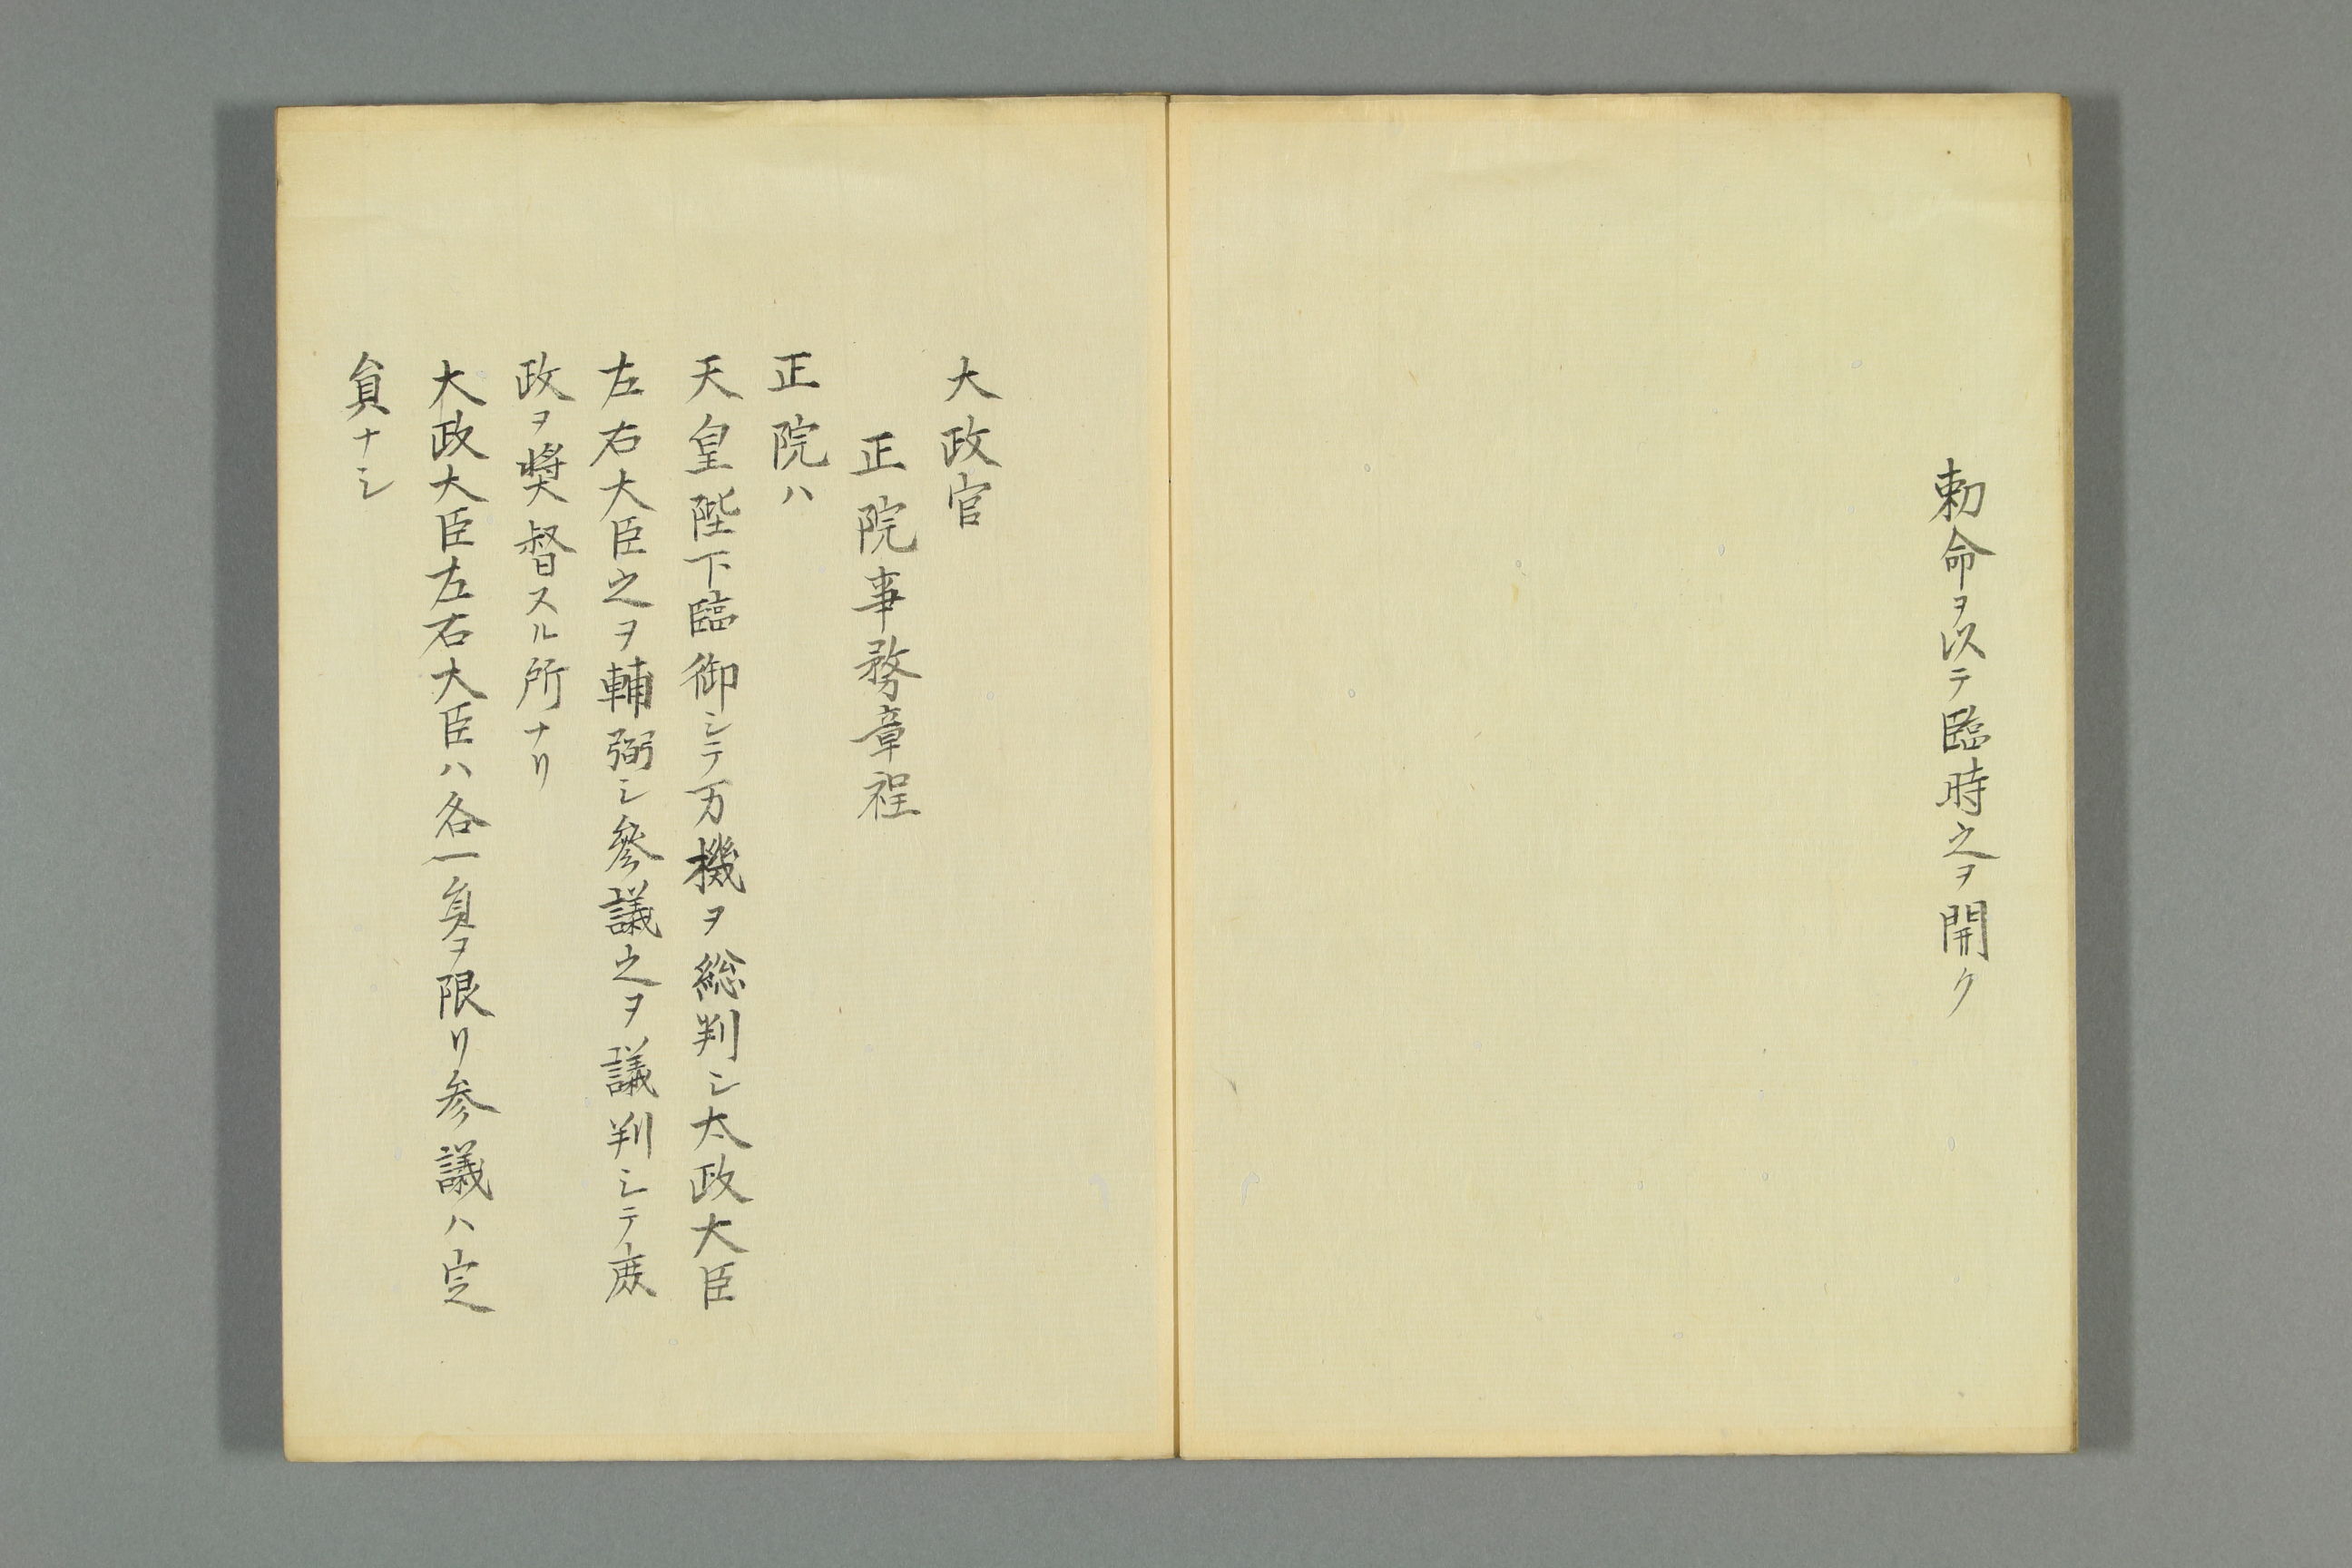 勅命ヲ以テ臨時之ヲ開ク
大政官
正院事務章程
正院ハ
天皇陛下臨御シテ万機ヲ総判シ太政大臣
左右大臣之ヲ輔弼シ參議之ヲ議判シテ庶
政ヲ奬督スル所ナリ
大政大臣左右大臣ハ各一員ヲ限リ参議ハ定
員ナシ